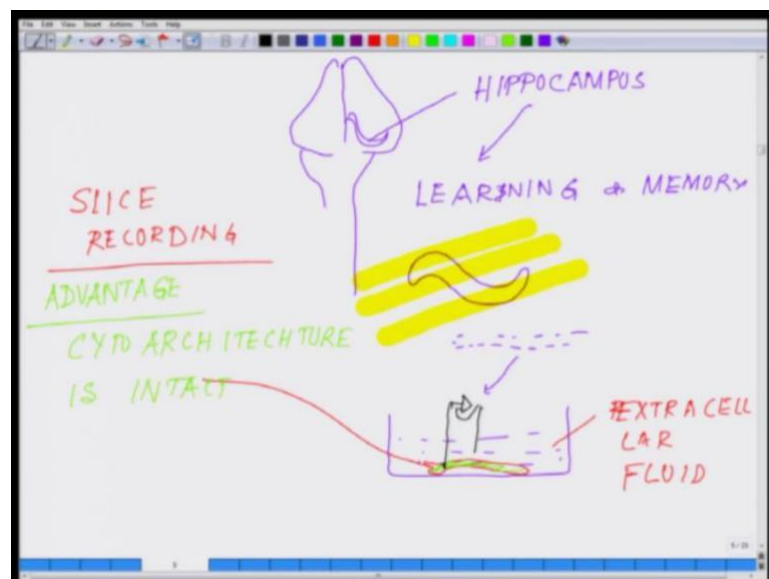 File Edit View Insert Actions Tools Help
HIPPOCAMPUS
LEARNING & MEMORY
SLICE
RECORDING
ADVANTAGE
CYTO ARCHITECHTURE
IS INTACT
EXTRACELL
LAR
FLUID